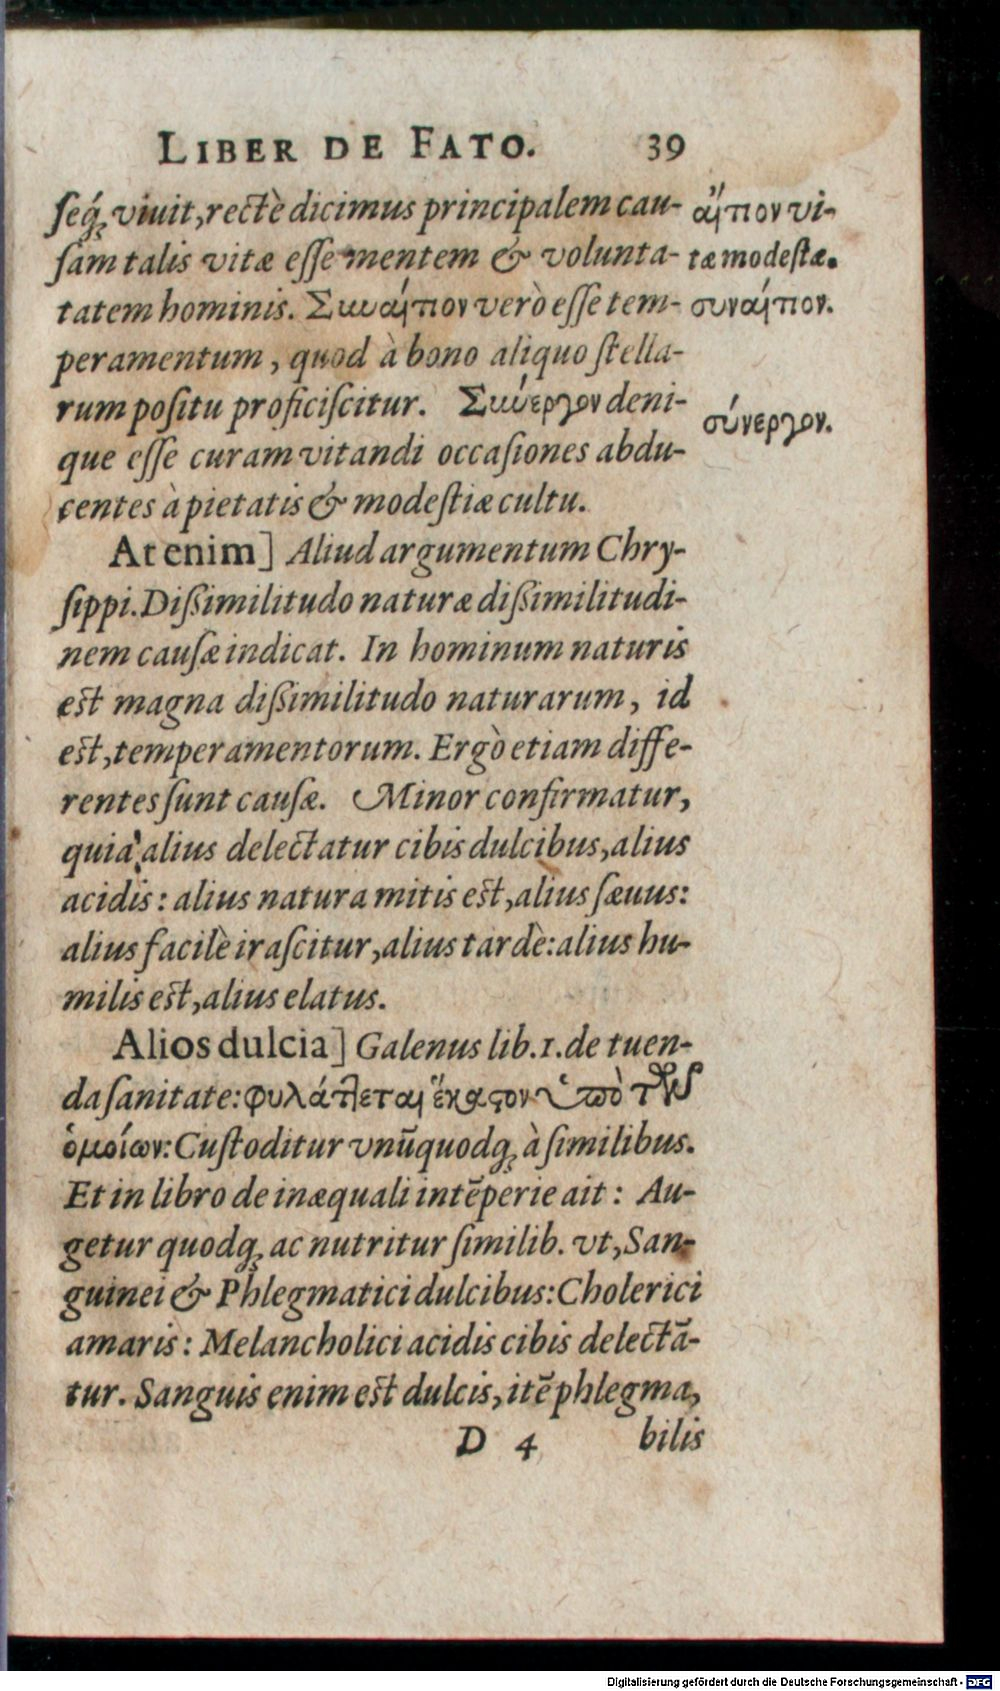 LIBER DE FATO. 39
ſeq́; viuit, rectè dicimus principalem cau-
ſam talis vitæ eſſe mentem & volunta-
tatem hominis. Συναίτιον verò eſſe tem-
peramentum, quod à bono aliquo ſtella-
rum poſitu proficiſcitur. Συνέργον deni-
que eſſe curam vitandi occaſiones abdu-
centes à pietatis & modeſtiæ cultu.
At enim] Aliud argumentum Chry-
ſippi. Diſsimilitudo naturæ diſsimilitudi-
nem cauſæ indicat. In hominum naturis
eſt magna diſsimilitudo naturarum, id
eſt, temperamentorum. Ergò etiam diffe-
rentes ſunt cauſæ. Minor confirmatur,
quia alius delectatur cibis dulcibus, alius
acidis: alius natura mitis eſt, alius ſæuus:
alius facilè iraſcitur, alius tardè: alius hu-
milis eſt, alius elatus.
Alios dulcia] Galenus lib. 1. de tuen-
da ſanitate: φυλάττεται ἕκαστον ὑπὸ τῶν
ὁμοίων: Cuſtoditur vnūquodq; à ſimilibus.
Et in libro de inæquali intēperie ait: Au-
getur quodq; ac nutritur ſimilib. vt, San-
guinei & Phlegmatici dulcibus: Cholerici
amaris: Melancholici acidis cibis delectā-
tur. Sanguis enim eſt dulcis, itē phlegma,
D 4 bilis
αἴτιον vi-
tæ modeſtæ.
συναίτιον.
σύνεργον.
Digitalisierung gefördert durch die Deutsche Forschungsgemeinschaft - DFG